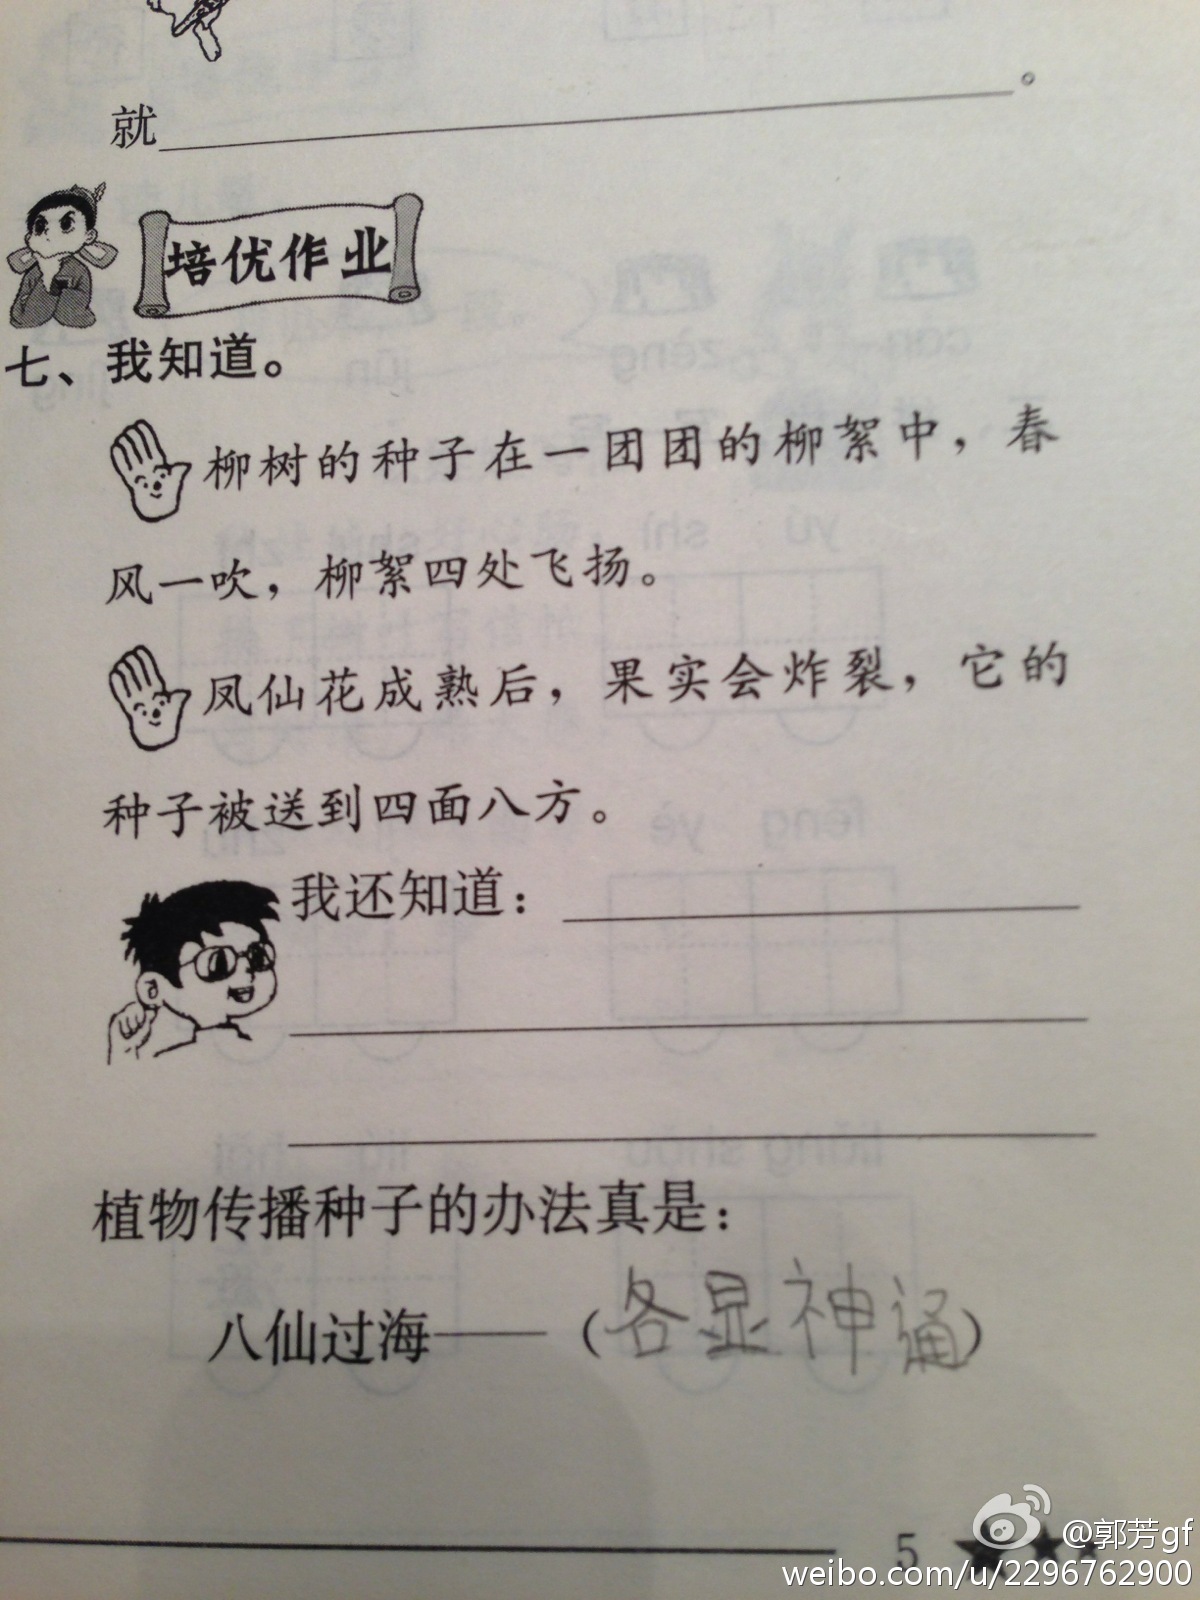 就。
培优作业
七、我知道。
柳树的种子在一团团的柳絮中，春
风一吹，柳絮四处飞扬。
凤仙花成熟后，果实会炸裂，它的
种子被送到四面八方。
我还知道：
植物传播种子的办法真是：
八仙过海——（各显神通）
5
@郭芳gf
weibo.com/u/2296762900